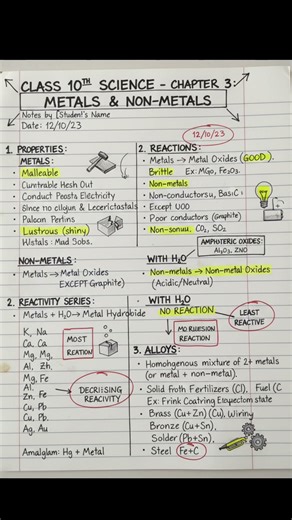 CLASS 10TH SCIENCE - CHAPTER 3:
METALS & NON-METALS
Notes by [Student's Name
Date: 12/10/23
12/10/23
1. PROPERTIES:
METALS:
• Malleable
• Cumtrable Hesh Out
• Conduct Peosta Electricity
• Since no eilojun & Lecerictastals
• Paloon Pertins
• Lustrous (shiny)
• Wstals: Mad Sobs.
NON-METALS:
• Metals → Metal Oxides
EXCEPT Graphite)
2. REACTIVITY SERIES:
• Metals + H₂O → Metal Hydrobide
K, Na
Ca, Ca
Mg, Mg,
Al, Zh,
Mg, Fe
Al.
Zn, Fe
Cu, Pb
Cu, Pb.
Ag, Au
MOST
REATION
DECRIISING
REACIVITY
Amalglam: Hg + Metal
2. REACTIONS:
• Metals → Metal Oxides (GOOD).
Brittle Ex: MgO, Fe₂O₃.
• Non-metals
• Non-conductorsu, BasiC
• Except UOO
• Poor conductors (Graphite)
• Non-soniuu. CO₂, SO₂
AMPHOTERIC OXIDES:
Al₂O₃, ZNO
WITH H₂O
• Non-metals → Non-metal Oxides
(Acidic/Neutral)
• WITH H₂O
NO REACTION
LEAST
REACTIVE
MORILIESION
REACTION
3. ALLOYS:
• Homohgenous mixture of 2+ metals
(or metal + non-metal).
• Solid Froth Fertilizers (Cl), Fuel (C
• Ex: Frink Coatring Etapectom state
• Brass (Cu+Zn) (Cu), Wiriny
Bronze (Cu+Sn),
Solder (Pb+Sn),
• Steel (Fe+C)